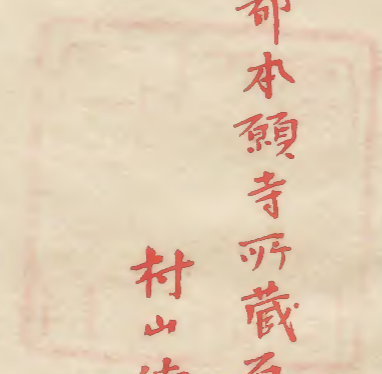 都本願寺所蔵
村山